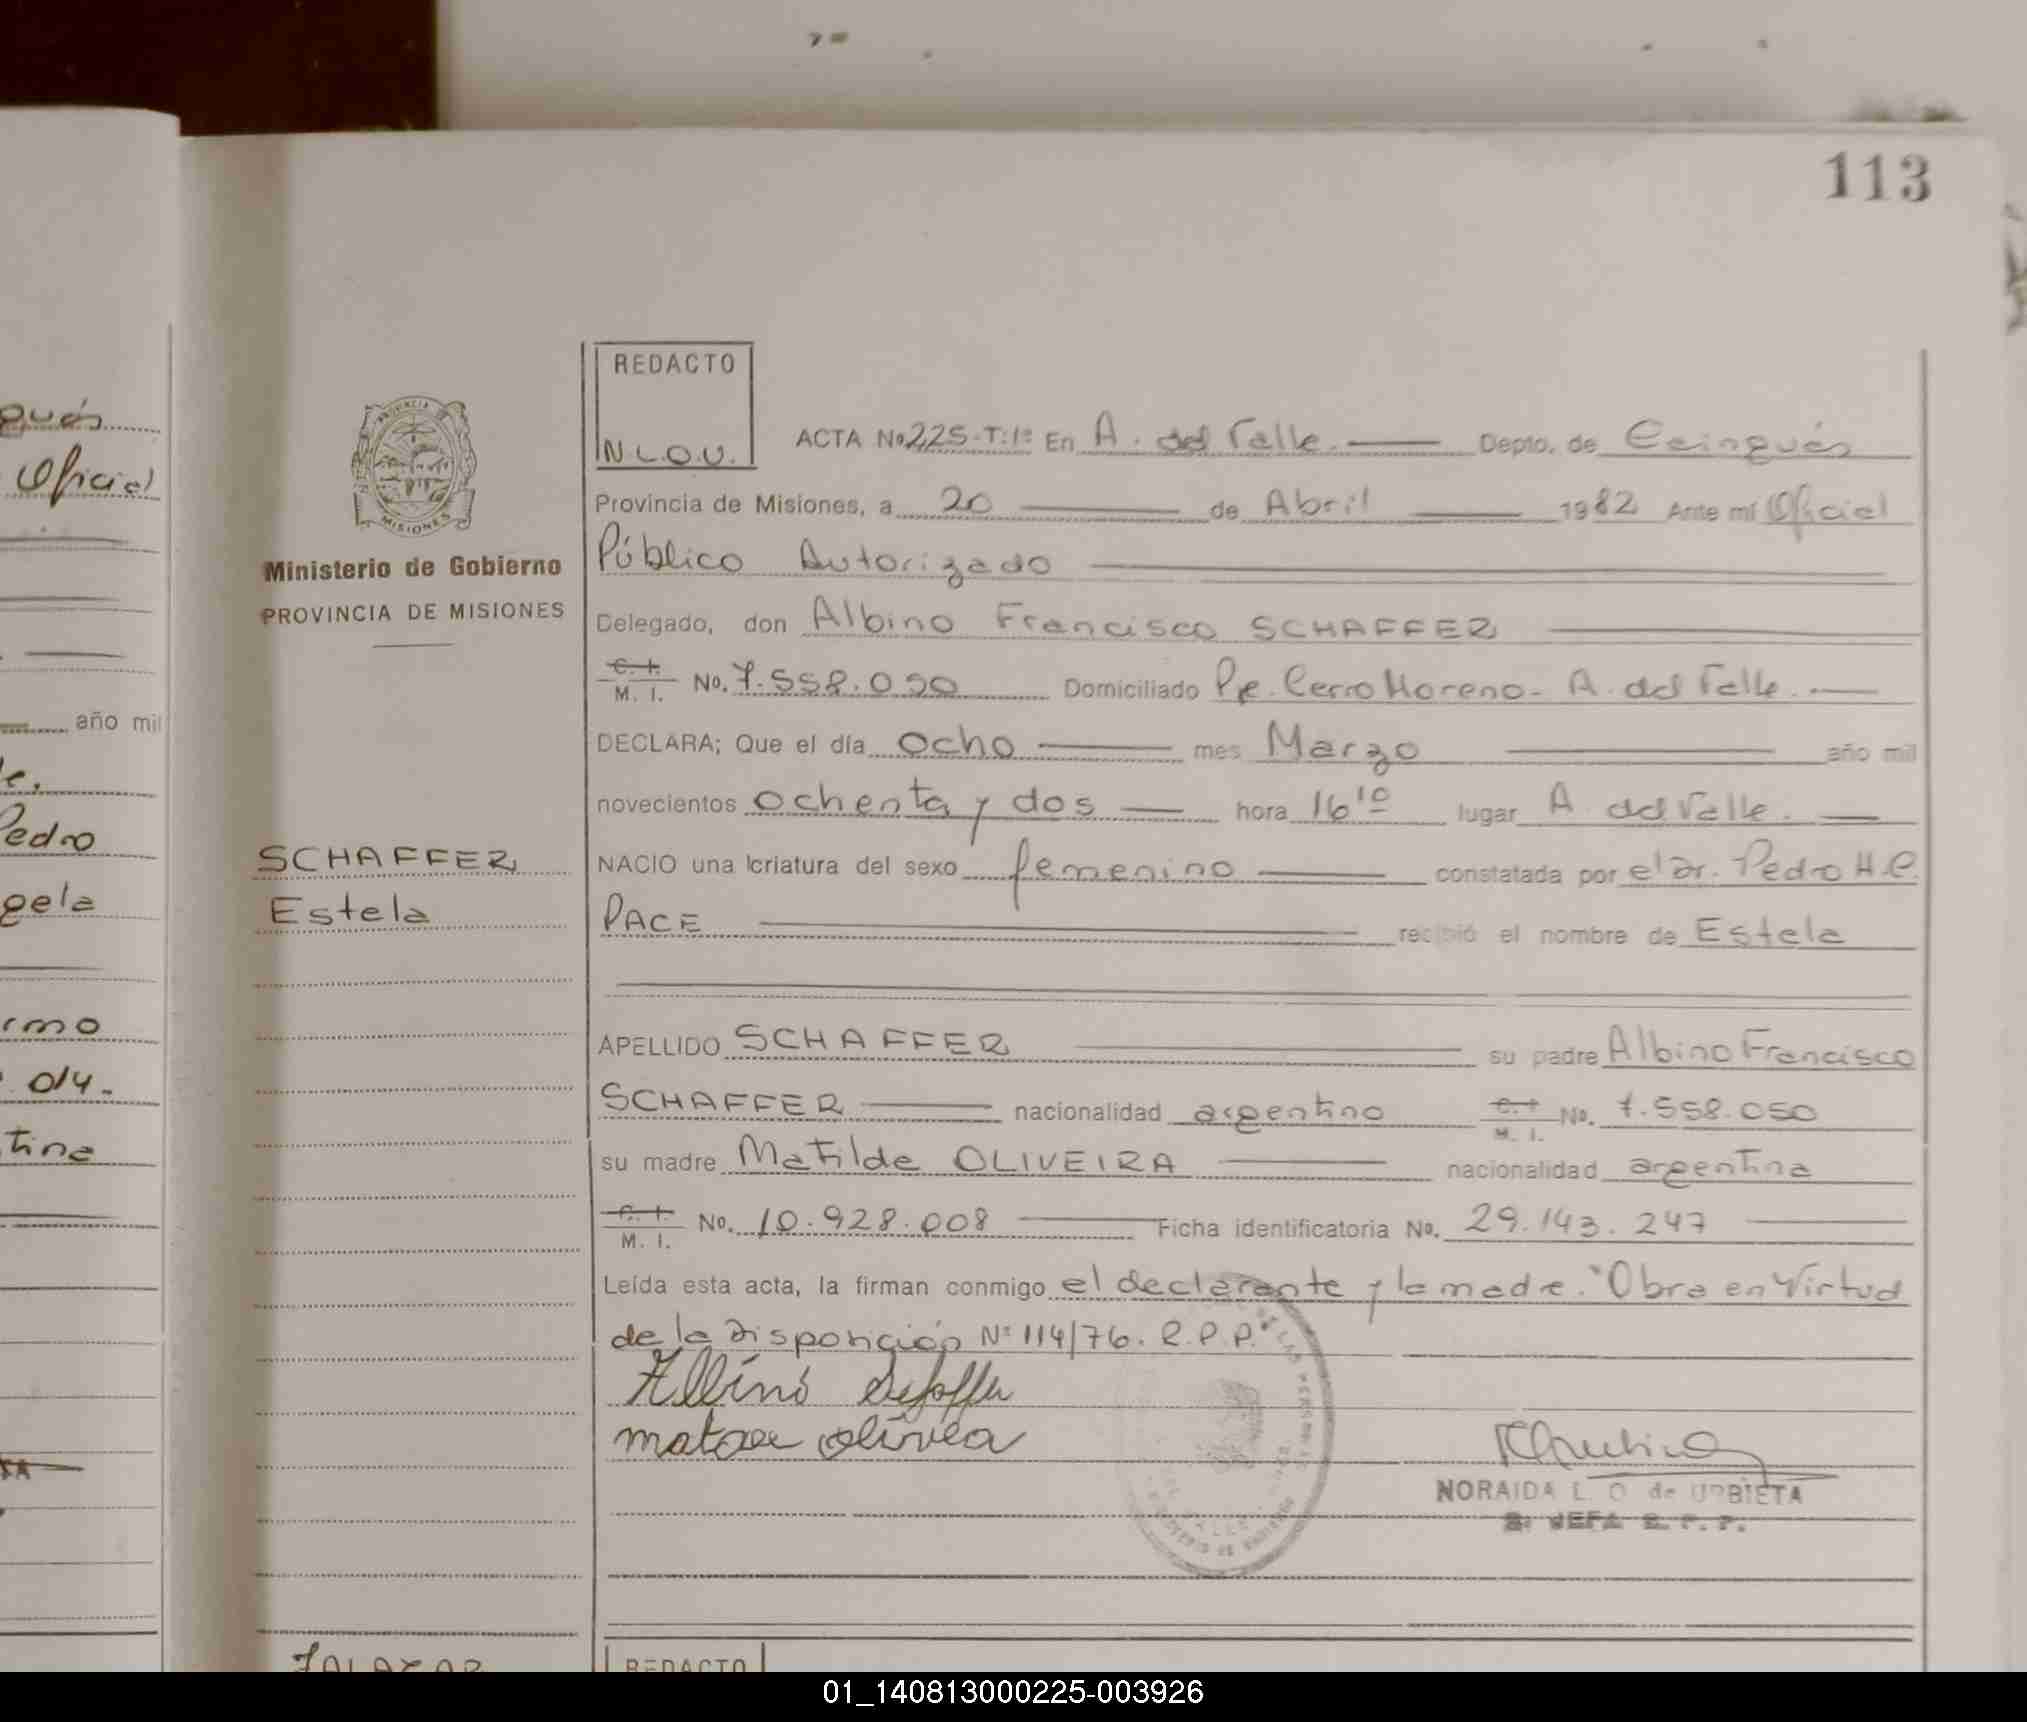 113
REDACTO
N.L.O.U.
ACTA No 225-T:1º En A. del Valle. Depto. de Cainguás
Provincia de Misiones, a 20 de Abril 1982 Ante mí Oficial
Público Autorizado
Delegado, don Albino Francisco SCHAFFER
C. I.
M. I. No. 7.558.050 Domiciliado Pje. Cerro Moreno - A. del Valle.
DECLARA; Que el día ocho mes Marzo año mil
novecientos ochenta y dos hora 16¹⁰ lugar A. del Valle.
NACIO una criatura del sexo femenino constatada por el Dr. Pedro H.C.
PACE recibió el nombre de Estela
APELLIDO SCHAFFER su padre Albino Francisco
SCHAFFER nacionalidad argentino C. I. M. I. No. 7.558.050
su madre Matilde OLIVEIRA nacionalidad argentina
C. I.
M. I. No. 10.928.008 Ficha identificatoria No. 29.143.247
Leída esta acta, la firman conmigo el declarante y la madre. "Obra en Virtud
de la Disposición Nº 114/76. R.P.P."
Albino
NORAIDA L. O. de URBIETA
JEFA R. P. P.
PROVINCIA
MISIONES
Ministerio de Gobierno
PROVINCIA DE MISIONES
SCHAFFER
Estela
REDACTO
guás
Oficial
año mil
Pedro
gela
rmo
014.
tina
01_140813000225-003926